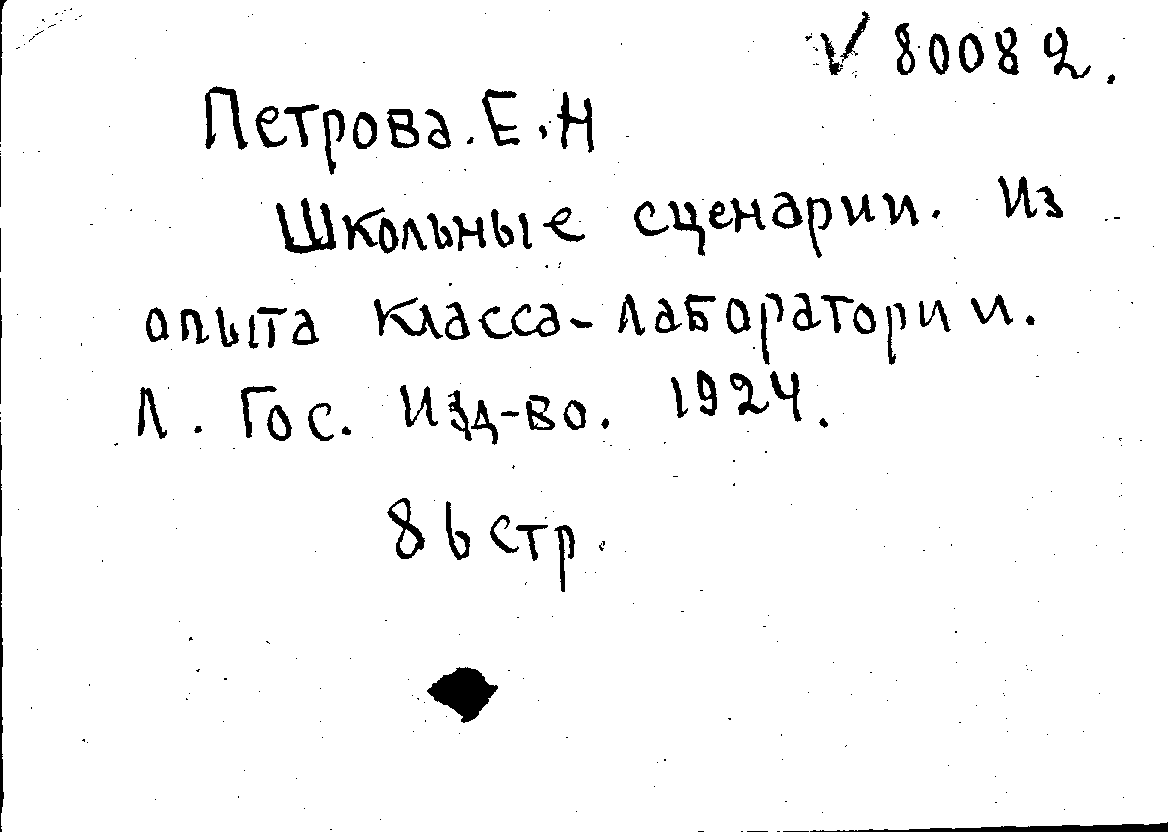 V 80082.
Петрова. Е. Н
Школьные сценарии. Из
опыта класса-лаборатории.
Л. Гос. Изд-во. 1924.
86 стр.